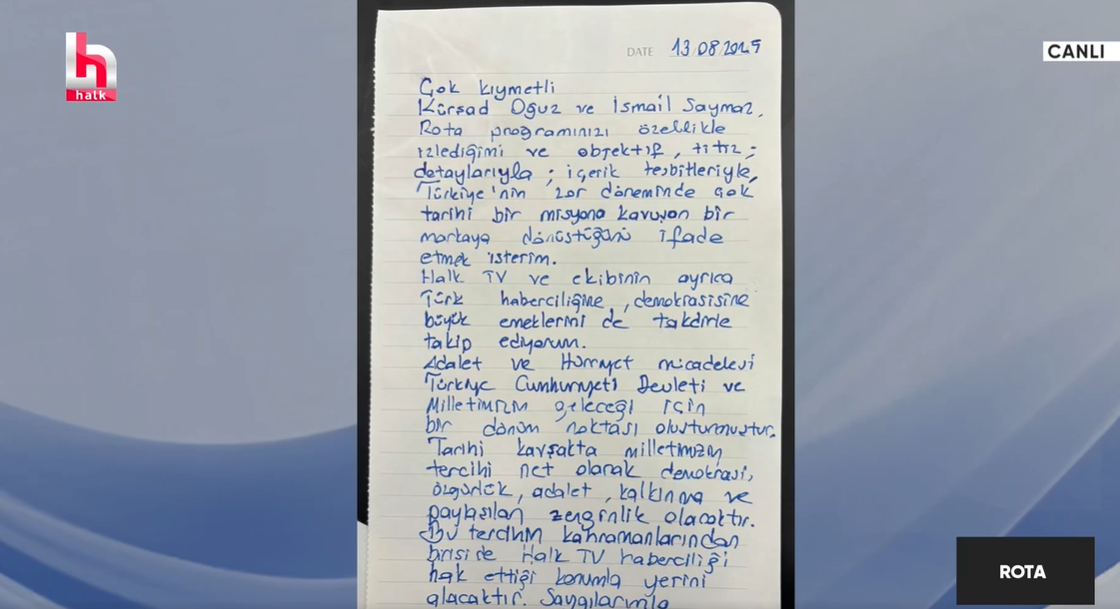 halk
CANLI
DATE 13.08.2025
Çok kıymetli
Kürşad Oğuz ve İsmail Saymaz,
Rota programınızı özellikle
izlediğimi ve objektif, titiz ;
detaylarıyla ; içerik tesbitleriyle,
Türkiye'nin zor döneminde çok
tarihi bir misyona kavuşan bir
markaya dönüştüğünü ifade
etmek isterim.
Halk TV ve ekibinin ayrıca
Türk haberciliğine, demokrasisine
büyük emeklerini de takdirle
takip ediyorum.
Adalet ve Hürriyet mücadelesi
Türkiye Cumhuriyeti Devleti ve
Milletimizin geleceği için
bir dönüm noktası oluşturmuştur.
Tarihi kavşakta milletimizin
tercihi net olarak demokrasi,
özgürlük, adalet, kalkınma ve
paylaşılan zenginlik olacaktır.
Bu tercihin kahramanlarından
birisi de Halk TV haberciliği
hak ettiği konumla yerini
alacaktır. Saygılarımla
ROTA